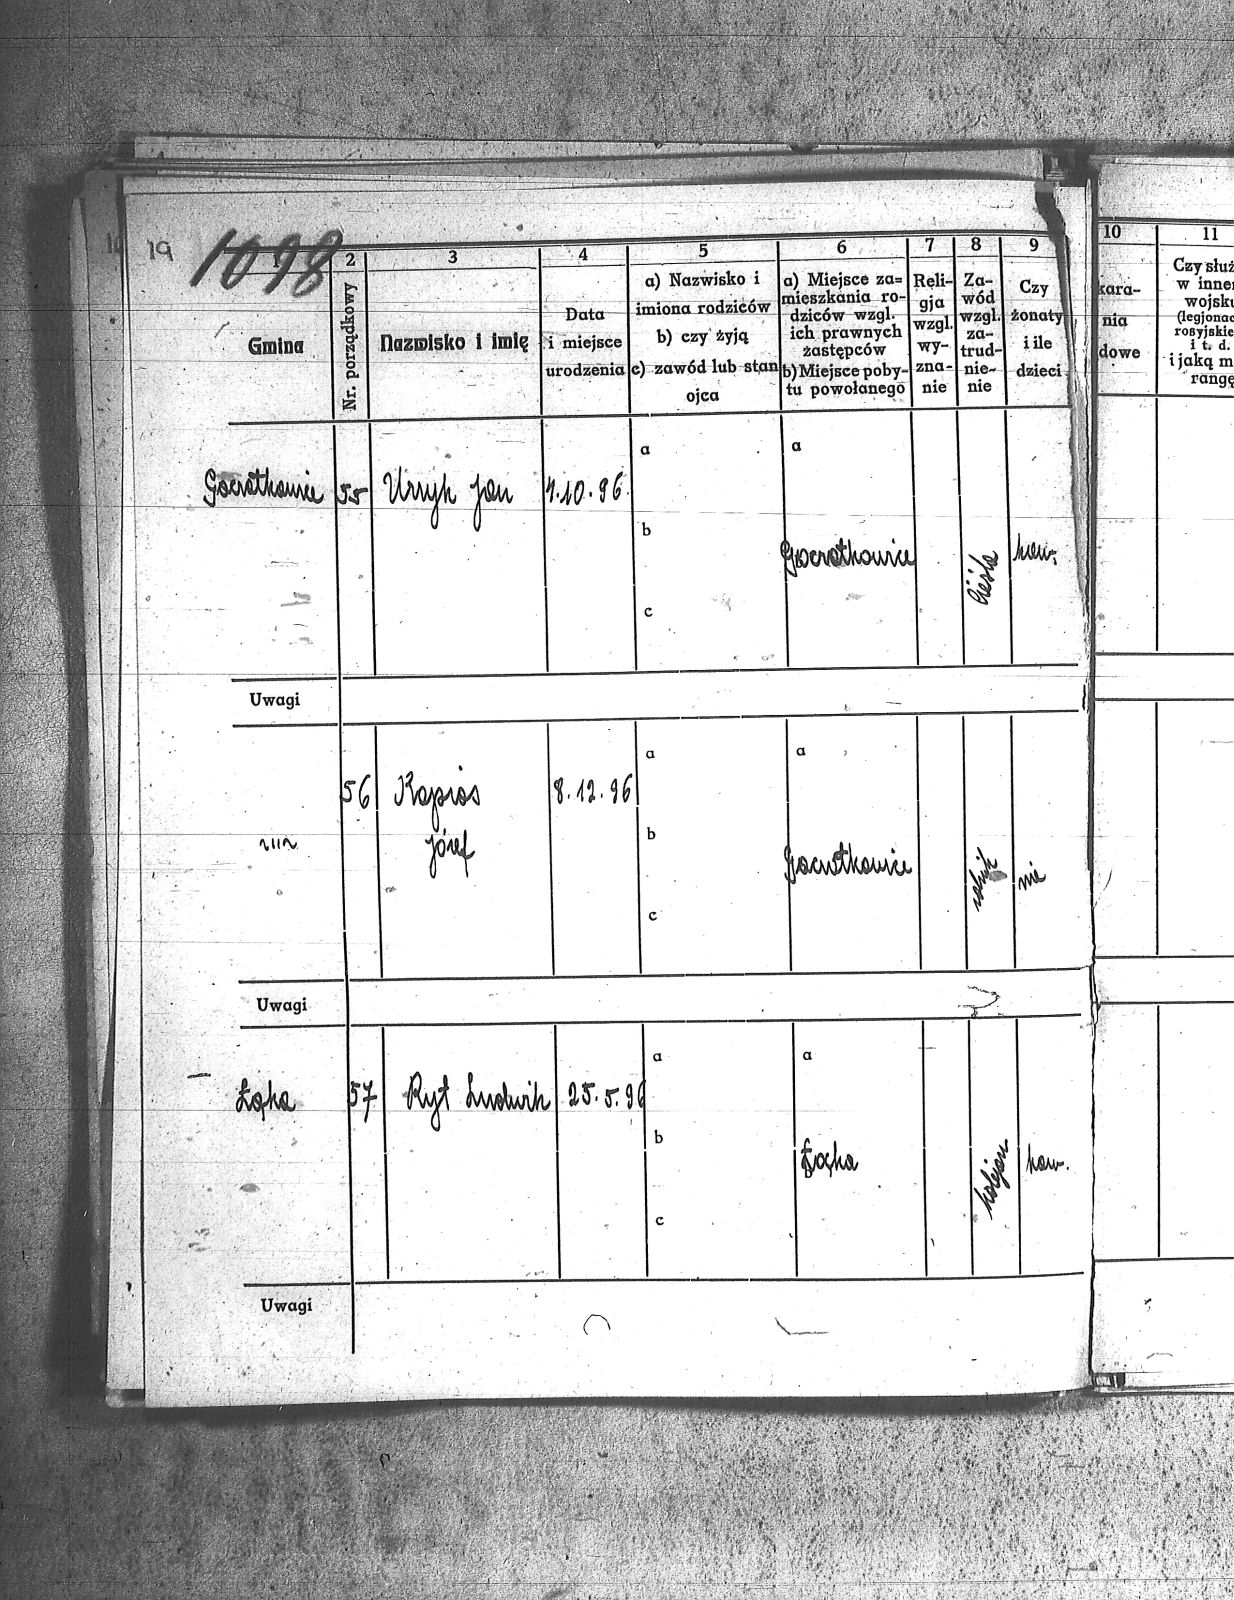 19 1098
1
2
3
4
5
6
7
8
9
10
11
Gmina
Nr. porządkowy
Nazwisko i imię
Data
i miejsce
urodzenia
a) Nazwisko i
imiona rodziców
b) czy żyją
c) zawód lub stan
ojca
a) Miejsce za=
mieszkania ro-
dziców wzgl.
ich prawnych
zastępców
b) Miejsce poby-
tu powołanego
Reli-
gja
wzgl.
wy-
zna-
nie
Za-
wód
wzgl.
za-
trud-
nie-
nie
Czy
żonaty
i ile
dzieci
kara-
nia
dowe
Czy służ
w inner
wojsku
(legjonac
rosyjskie
i t. d.
i jaką m
rangę
Goczałkowice 55 Urzyk Jan 4.10.96.
a
b
c
a
Goczałkowice
cieśla
kaw.
Uwagi
56 Kapias
Józef
8.12.96
a
b
c
a
Goczałkowice
rolnik
nie
Uwagi
Łąka 57 Ryt Ludwik 25.5.96
a
b
c
a
b
Łąka
kolejarz
kaw.
Uwagi